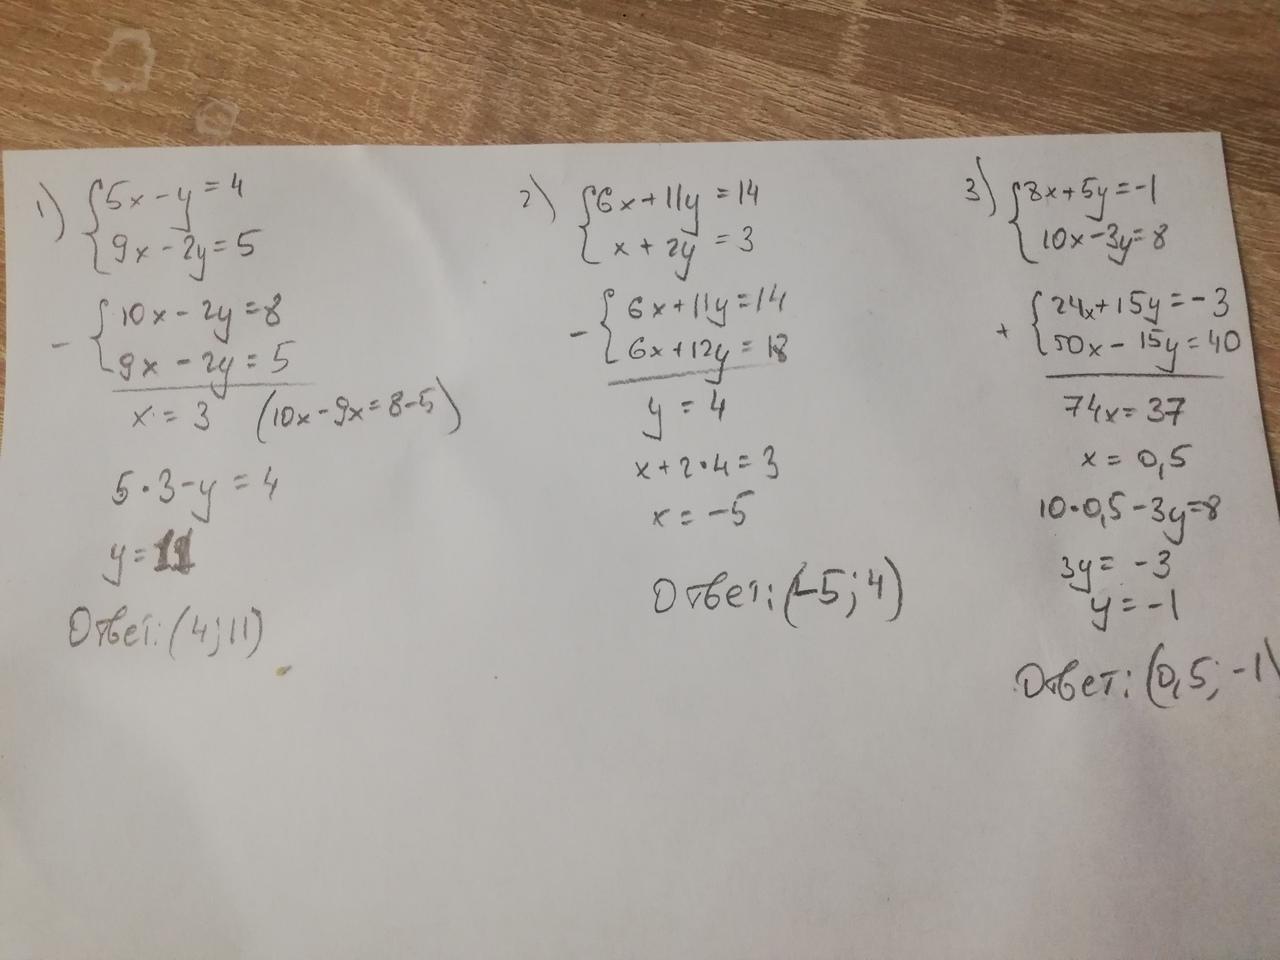 1) 5x - y = 4
9x - 2y = 5
- 10x - 2y = 8
9x - 2y = 5
x = 3 (10x - 9x = 8 - 5)
5 • 3 - y = 4
y = 11
Ответ: (4; 11)
2) 6x + 11y = 14
x + 2y = 3
- 6x + 11y = 14
6x + 12y = 18
y = 4
x + 2 • 4 = 3
x = -5
Ответ: (-5; 4)
3) 8x + 5y = -1
10x - 3y = 8
+ 24x + 15y = -3
50x - 15y = 40
74x = 37
x = 0,5
10 • 0,5 - 3y = 8
3y = -3
y = -1
Ответ: (0,5; -1)